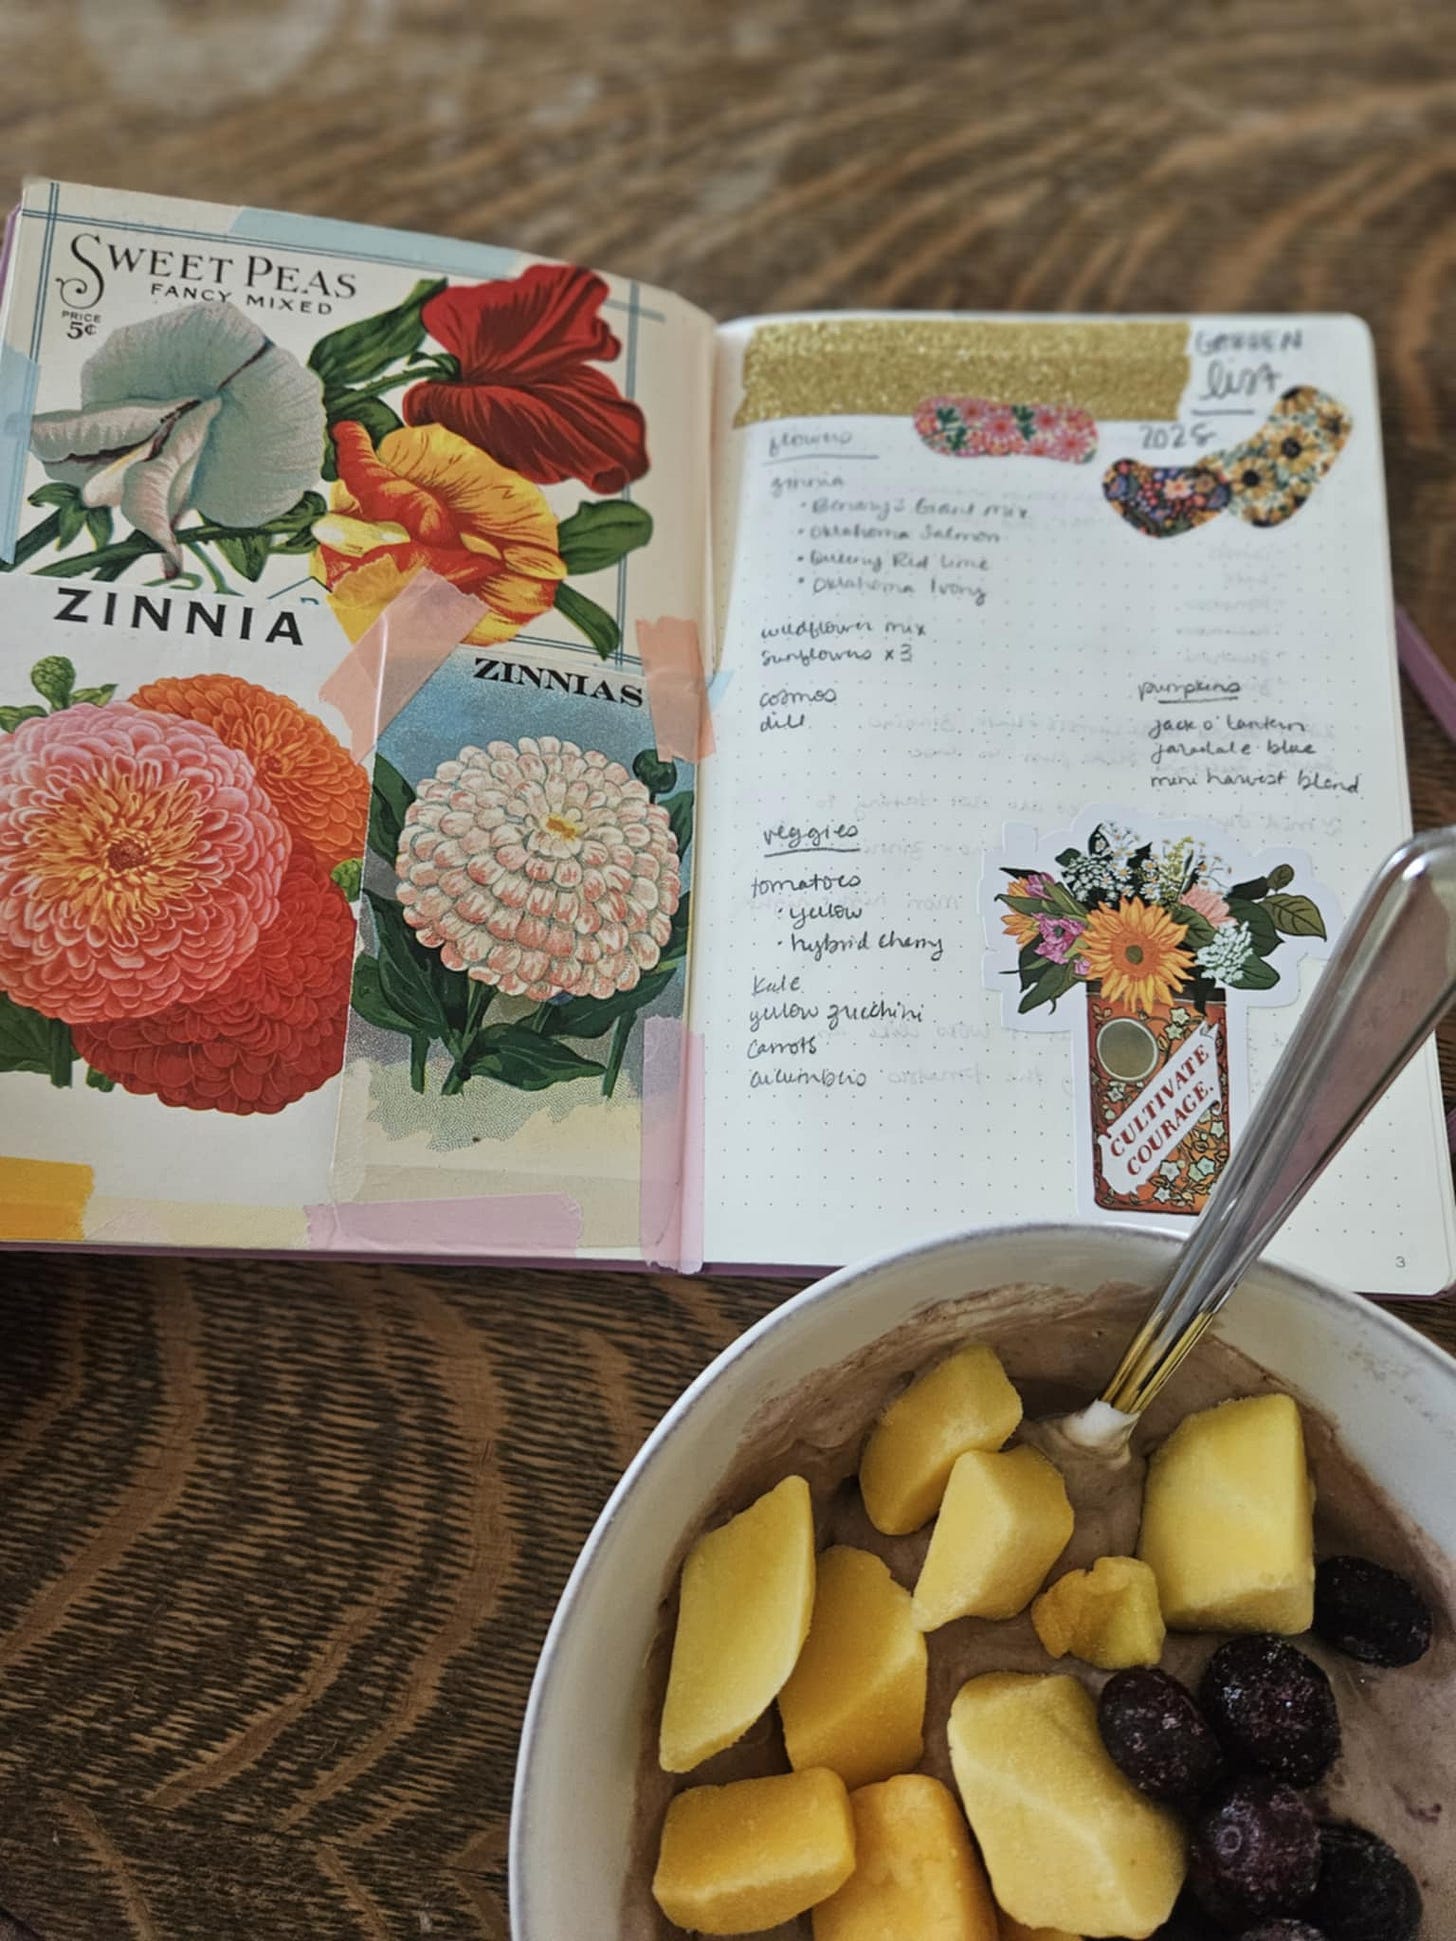 SWEET PEAS
FANCY MIXED
PRICE
5¢
ZINNIA
ZINNIAS
GARDEN
list
2025
flowers
zinnia
• Benary's Giant mix
• Oklahoma Salmon
• Queeny Red Lime
• Oklahoma Ivory
wildflower mix
sunflowers x3
cosmos
dill
pumpkins
jack o' lantern
jaradale blue
mini harvest blend
veggies
tomatoes
• yellow
• hybrid cherry
kale
yellow zucchini
carrots
cucumbers
CULTIVATE
COURAGE.
3